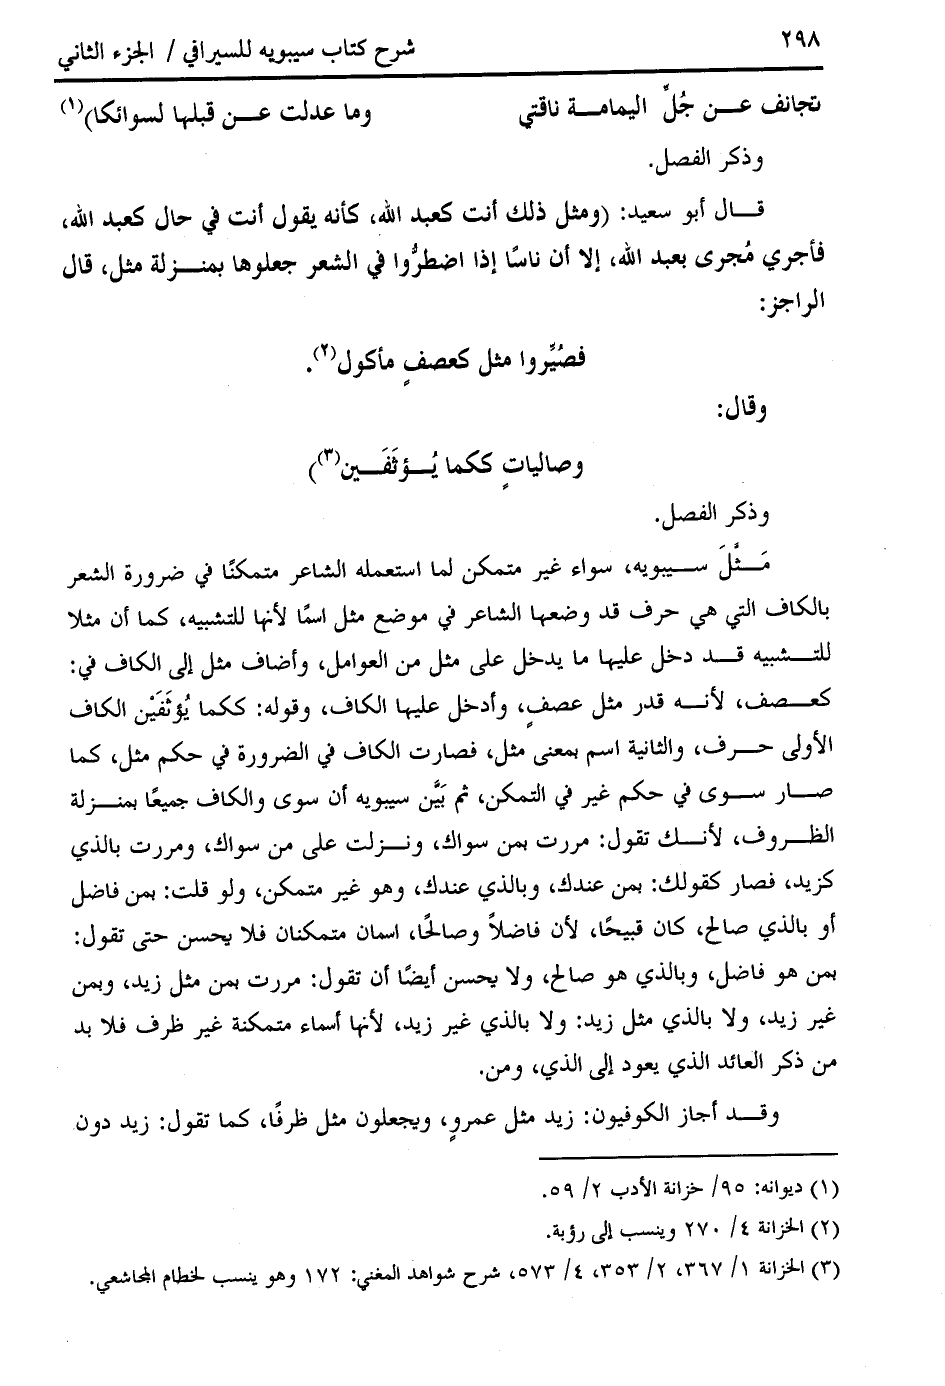 ٢٩٨
شرح كتاب سيبويه للسيرافي / الجزء الثاني
تجانف عـن جُلِّ اليمامـة ناقتي وما عدلت عـن قبلها لسوائكا)(١)
وذكر الفصل.
قـال أبو سعيد: (ومثل ذلك أنت كعبد الله، كأنه يقول أنت في حال كعبد الله،
فأجري مُجرى بعبد الله، إلا أن ناسًا إذا اضطرُّوا في الشعر جعلوها بمنـزلة مثل، قال
الراجز:
فصُيِّروا مثل كعصفٍ مأكول(٢).
وقال:
وصالياتٍ ككما يُـؤثَفَـين(٣))
وذكر الفصل.
مَـثَّلَ سـيبويه، سواء غير متمكن لما استعمله الشاعر متمكنًا في ضرورة الشعر
بالكاف التي هي حرف قد وضعها الشاعر في موضع مثل اسمًا لأنها للتشبيه، كما أن مثلا
للتـشبيه قـد دخل عليها ما يدخل على مثل من العوامل، وأضاف مثل إلى الكاف في:
كعـصف، لأنـه قدر مثل عصفٍ، وأدخل عليها الكاف، وقوله: ككما يُؤثَفَيْن الكاف
الأولى حـرف، والثانية اسم بمعنى مثل، فصارت الكاف في الضرورة في حكم مثل، كما
صـار سـوى في حكم غير في التمكن، ثم بَيَّن سيبويه أن سوى والكاف جميعًا بمنـزلة
الظـروف، لأنـك تقول: مررت بمن سواك، ونـزلت على من سواك، ومررت بالذي
كزيد، فصار كقولك: بمن عندك، وبالذي عندك، وهو غير متمكن، ولو قلت: بمن فاضل
أو بالذي صالح، كان قبيحًا، لأن فاضلاً وصالحًا، اسمان متمكنان فلا يحسن حتى تقول:
بمن هو فاضل، وبالذي هو صالح، ولا يحسن أيضًا أن تقول: مررت بمن مثل زيد، وبمن
غير زيد، ولا بالذي مثل زيد: ولا بالذي غير زيد، لأنها أسماء متمكنة غير ظرف فلا بد
من ذكر العائد الذي يعود إلى الذي، ومن.
وقـد أجاز الكوفيون: زيد مثل عمرٍو، ويجعلون مثل ظرفًا، كما تقول: زيد دون
(١) ديوانه: ٩٥/ خزانة الأدب ٢/ ٥٩.
(٢) الخزانة ٤/ ٢٧٠ وينسب إلى رؤبة.
(٣) الخزانة ١/ ٣٦٧، ٢/ ٣٥٣، ٤/ ٥٧٣، شرح شواهد المغني: ١٧٢ وهو ينسب لخطام المجاشعي.